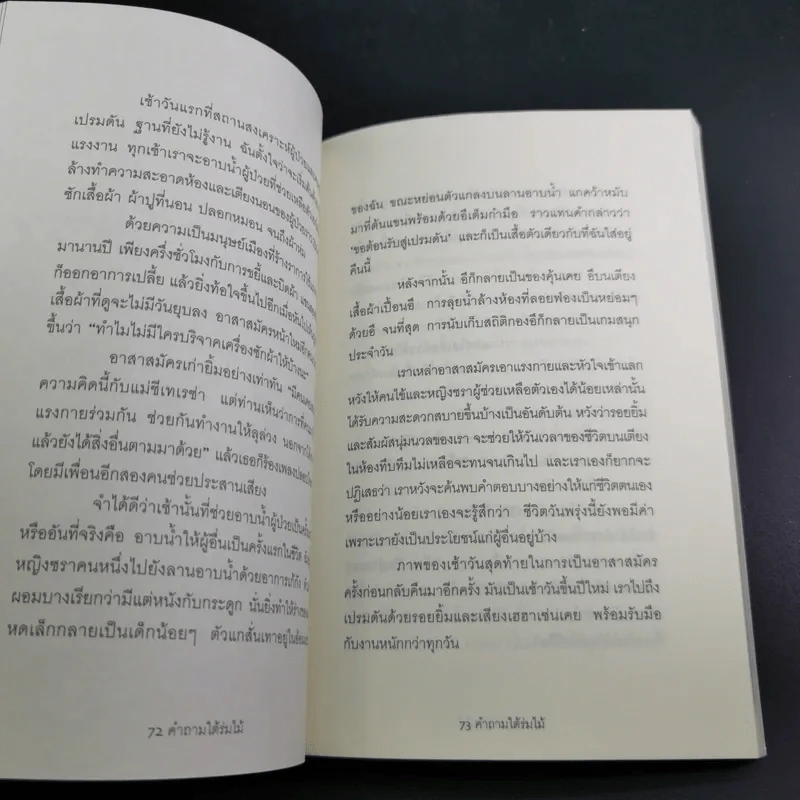 เช้าวันแรกที่สถานสงเคราะห์ผู้ป่วย
เปรมดัน ฐานที่ยังไม่รู้งาน ฉันตั้งใจว่าจะเริ่มต้น
แรงงาน ทุกเช้าเราจะอาบน้ำผู้ป่วยที่ช่วยเหลือตัวเอง
ล้างทำความสะอาดห้องและเตียงนอนของผู้ป่วย
ซักเสื้อผ้า ผ้าปูที่นอน ปลอกหมอน จนถึงผ้าห่ม
ด้วยความเป็นมนุษย์เมืองที่ร้างราการใช้
มานานปี เพียงครึ่งชั่วโมงกับการขยี้และบิดผ้า
ก็ออกอาการเปลี้ย แล้วยิ่งท้อใจขึ้นไปอีกเมื่อหันไป
เสื้อผ้าที่ดูจะไม่มีวันยุบลง อาสาสมัครหน้าใหม่อีกคน
ขึ้นว่า “ทำไมไม่มีใครบริจาคเครื่องซักผ้าให้บ้างนะ”
อาสาสมัครเก่ายิ้มอย่างเท่าทัน “มีคน
ความคิดนี้กับแม่ชีเทเรซ่า แต่ท่านเห็นว่าการที่
แรงกายร่วมกัน ช่วยกันทำงานให้ลุล่วง นอกจาก
แล้วยังได้สิ่งอื่นตามมาด้วย” แล้วเธอก็ร้องเพลง
โดยมีเพื่อนอีกสองคนช่วยประสานเสียง
จำได้ดีว่าเช้านั้นที่ช่วยอาบน้ำผู้ป่วยเป็นครั้ง
หรืออันที่จริงคือ อาบน้ำให้ผู้อื่นเป็นครั้งแรกในชีวิต
หญิงชราคนหนึ่งไปยังลานอาบน้ำด้วยอาการเก้กัง
ผอมบางเรียกว่ามีแต่หนังกับกระดูก นั่นยิ่งทำให้ร่าง
หดเล็กกลายเป็นเด็กน้อยๆ ตัวแกสั่นเทาอยู่ใน
72 คำถามใต้ร่มไม้
ของฉัน ขณะหย่อนตัวแกลงบนลานอาบน้ำ แกคว้าหมับ
มาที่ต้นแขนพร้อมด้วยอึเต็มกำมือ ราวแทนคำกล่าวว่า
‘ขอต้อนรับสู่เปรมดัน’ และก็เป็นเสื้อตัวเดียวกับที่ฉันใส่อยู่
คืนนี้
หลังจากนั้น อึก็กลายเป็นของคุ้นเคย อึบนเตียง
เสื้อผ้าเปื้อนอึ การลุยน้ำล้างห้องที่ลอยฟ่องเป็นหย่อมๆ
ด้วยอึ จนที่สุด การนับเก็บสถิติกองอึก็กลายเป็นเกมสนุก
ประจำวัน
เราเหล่าอาสาสมัครเอาแรงกายและหัวใจเข้าแลก
หวังให้คนไข้และหญิงชราผู้ช่วยเหลือตัวเองได้น้อยเหล่านั้น
ได้รับความสะดวกสบายขึ้นบ้างเป็นอันดับต้น หวังว่ารอยยิ้ม
และสัมผัสนุ่มนวลของเรา จะช่วยให้วันเวลาของชีวิตบนเตียง
ในห้องทึบทึมไม่เหลือจะทนจนเกินไป และเราเองก็ยากจะ
ปฏิเสธว่า เราหวังจะค้นพบคำตอบบางอย่างให้แก่ชีวิตตนเอง
หรืออย่างน้อยเราเองจะรู้สึกว่า ชีวิตวันพรุ่งนี้ยังพอมีค่า
เพราะเรายังเป็นประโยชน์แก่ผู้อื่นอยู่บ้าง
ภาพของเช้าวันสุดท้ายในการเป็นอาสาสมัคร
ครั้งก่อนกลับคืนมาอีกครั้ง มันเป็นเช้าวันขึ้นปีใหม่ เราไปถึง
เปรมดันด้วยรอยยิ้มและเสียงเฮฮาเช่นเคย พร้อมรับมือ
กับงานหนักกว่าทุกวัน
73 คำถามใต้ร่มไม้